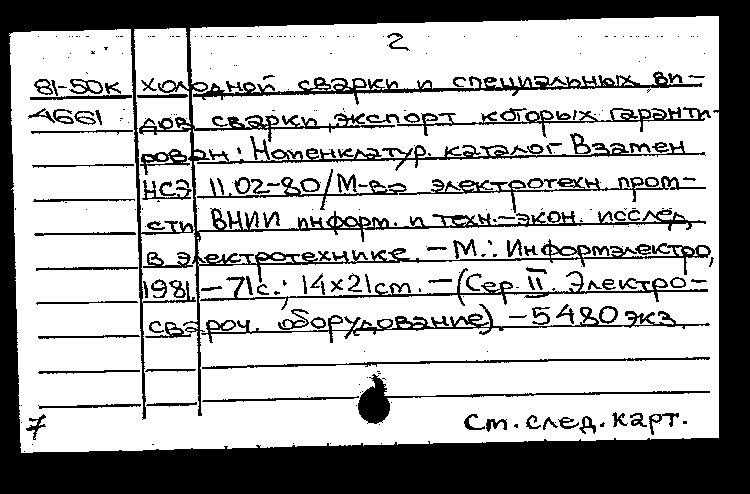 2
81-50к холодной сварки и специальных ви-
4661 дов сварки, экспорт которых гаранти-
рован: Номенклатур. каталог. Взамен
НСЭ 11.02-80/М-во электротехн. пром-
сти, ВНИИ информ. и техн.-экон. исслед.
в электротехнике. - М.: Информэлектро,
1981. - 71с.; 14x21cm. - (Сер. II. Электро-
свароч. оборудование). - 5480 экз.
7 См. след. карт.